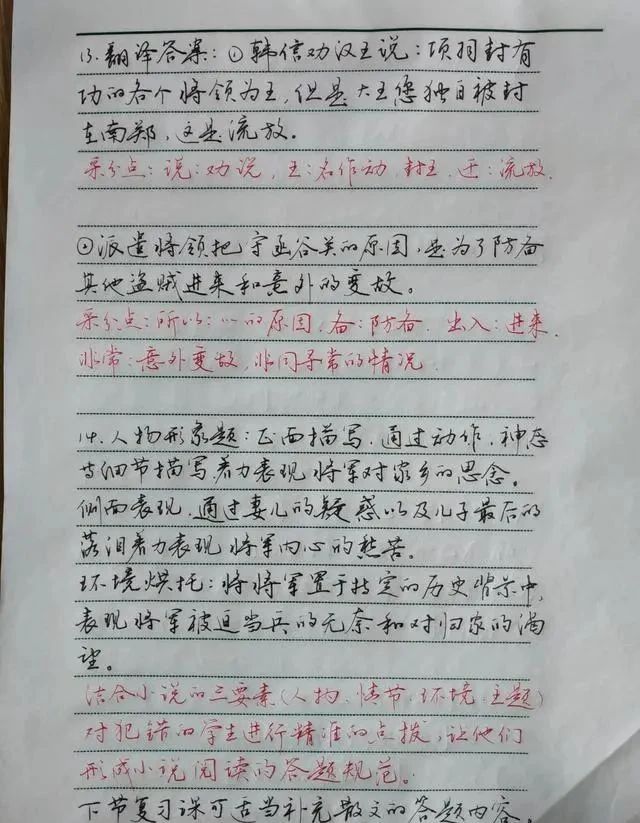 13.翻译答案：①韩信劝汉王说：项羽封有
功的各个将领为王，但是大王您独自被封
在南郑，这是流放。
采分点：说：劝说，王：名作动，封王，迁：流放.
②派遣将领把守函谷关的原因，是为了防备
其他盗贼进来和意外的变故。
采分点：所以：…的原因，备：防备. 出入：进来.
非常：意外变故，非同寻常的情况
14.人物形象题：正面描写.通过动作.神态
与细节描写着力表现将军对家乡的思念。
侧面表现.通过妻儿的疑惑以及儿子最后的
落泪着力表现将军内心的愁苦。
环境烘托：将将军置于特定的历史背景中，
表现将军被迫当兵的无奈和对归家的渴
望。
结合小说的三要素（人物.情节.环境.主题）
对犯错的学生进行精准的点拨，让他们
形成小说阅读的答题规范。
下节复习课可适当补充散文的答题内容。